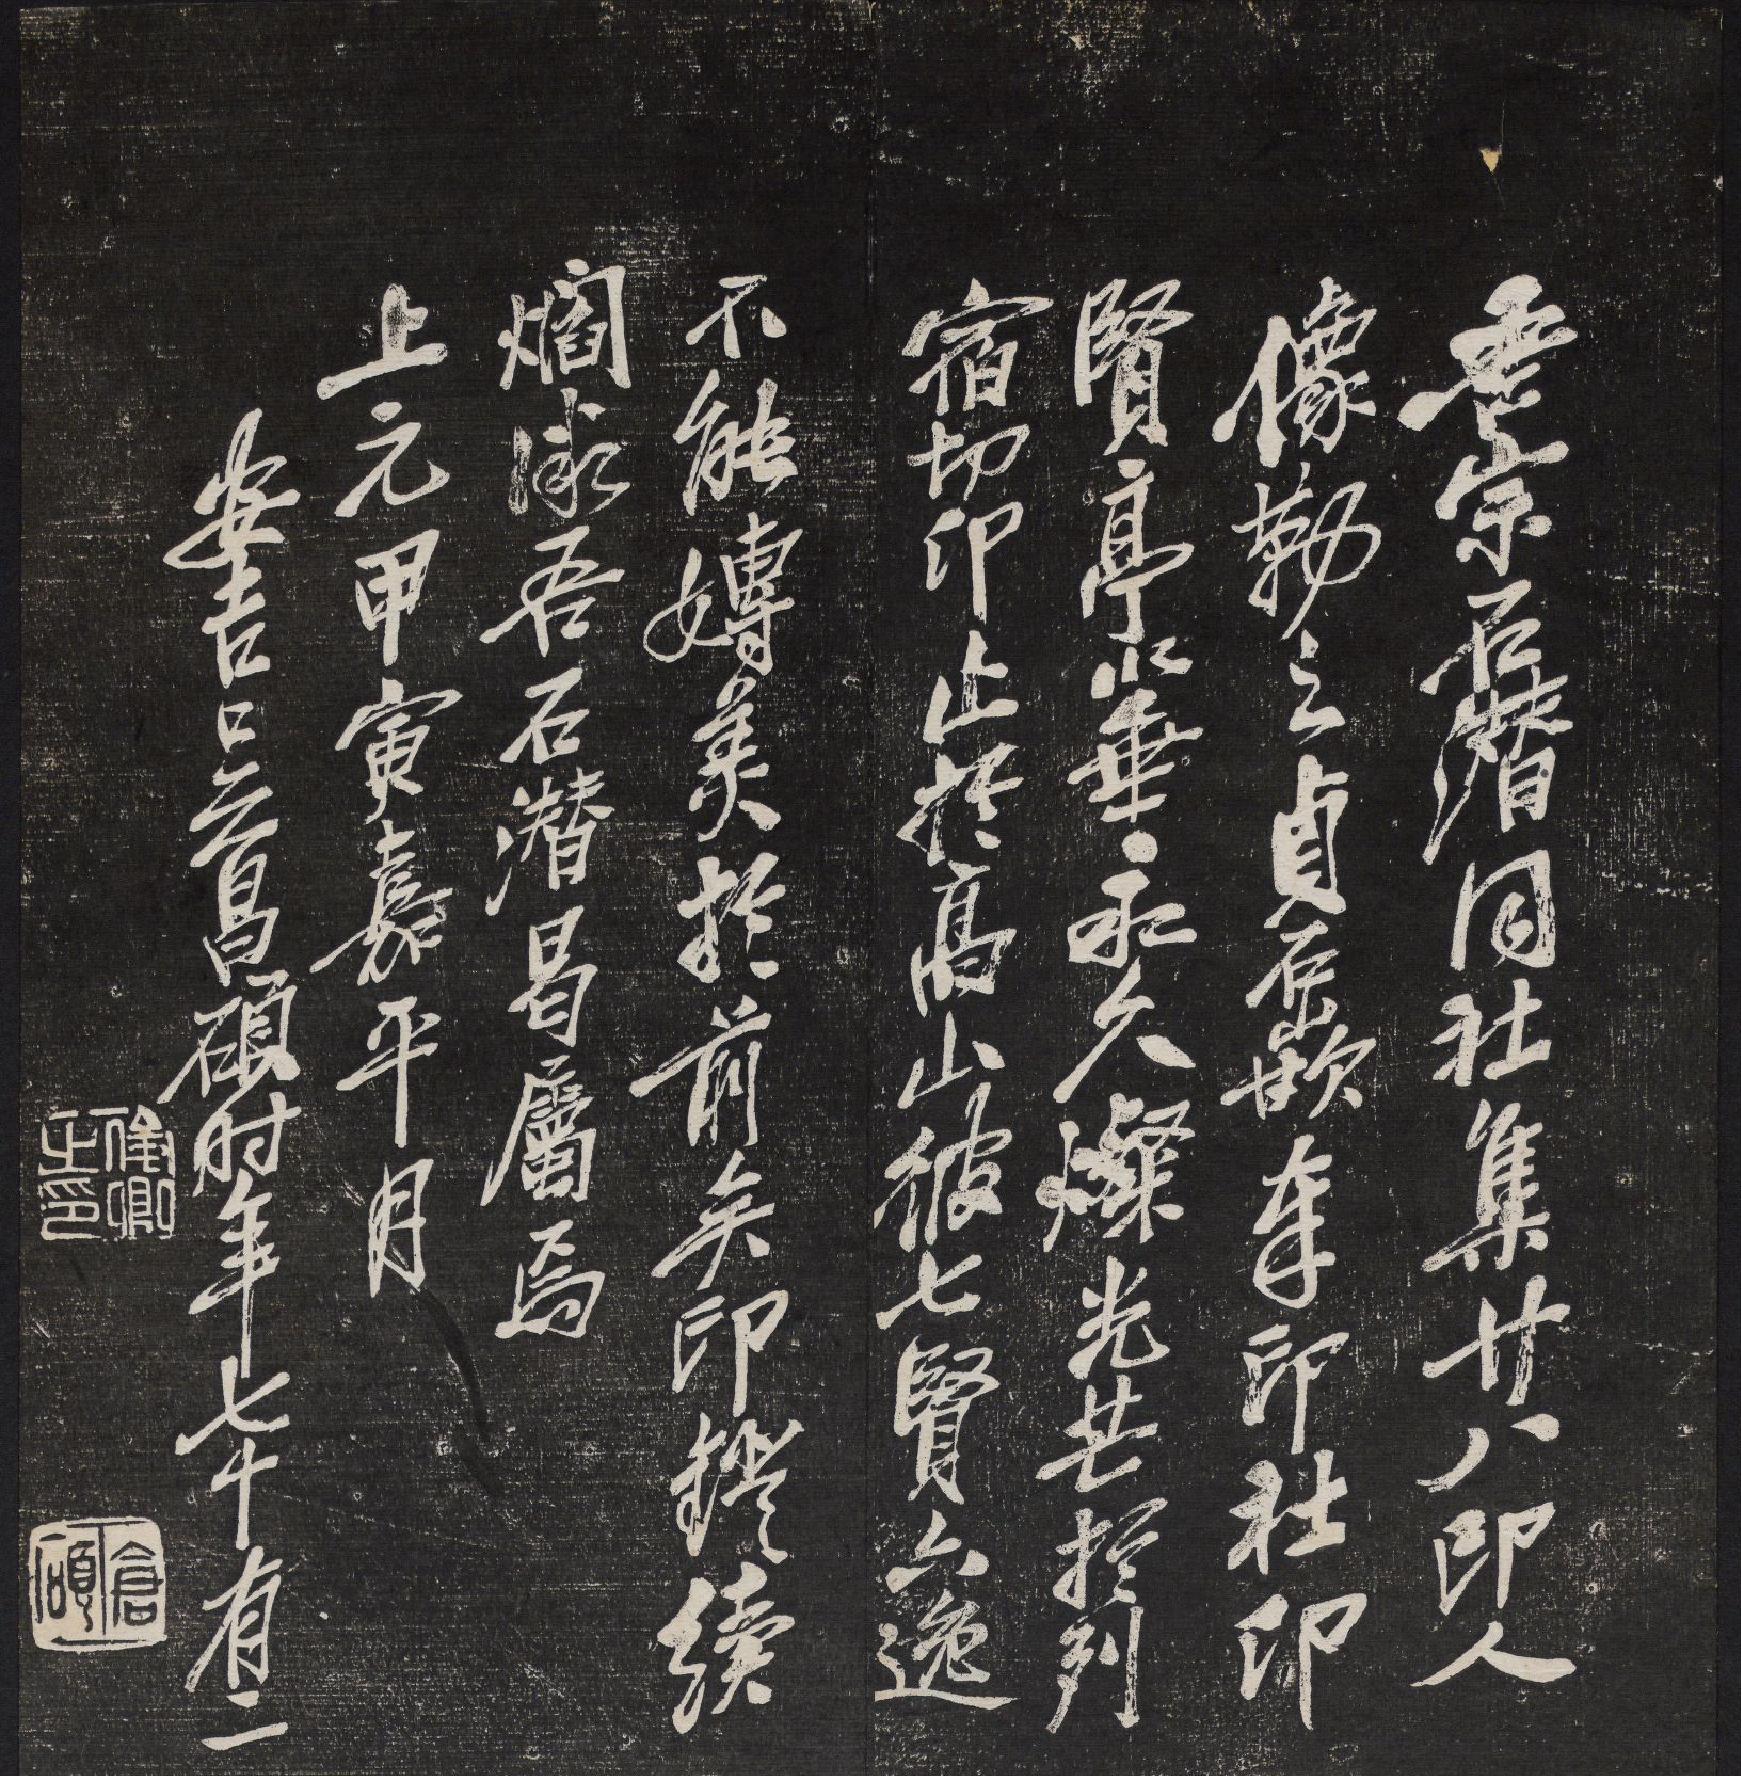 吾宗石潛同社集廿八印人
像勒之貞石嵌奉印社印
賢亭鬯垂永久燦光芒於列
宿切印止於高山彼七賢六逸
不能專美於前矣印鐙續
爓永吾石潛曷屬焉
上元甲寅嘉平月
安吉吳昌碩時年七十有二
俊卿之印
倉碩